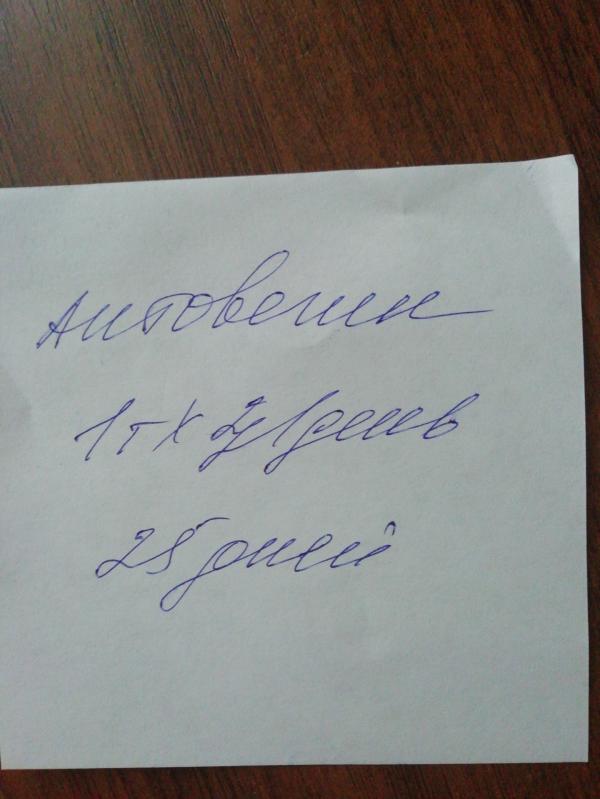 Актовегин
1т х 2р/день
25 дней